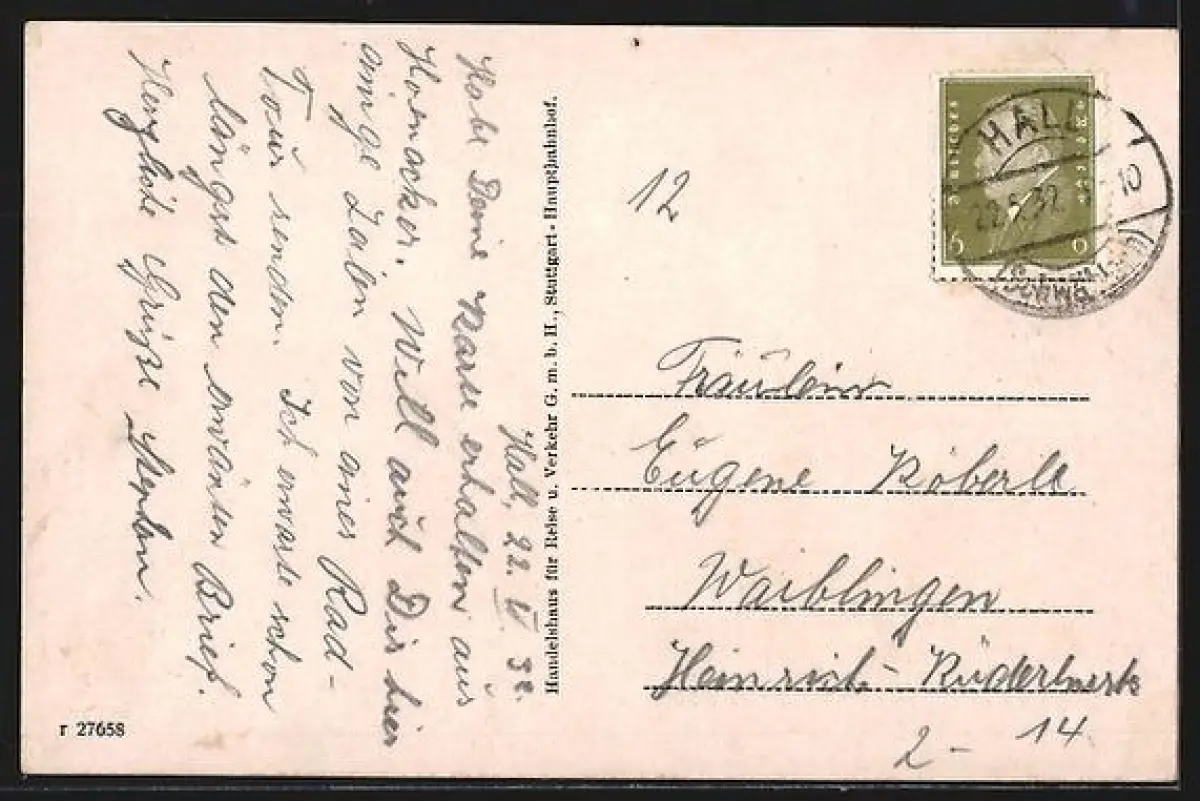 Hall, 22. V. 32.
Habe Deine Karte erhalten aus
Hornacker. Will auch Dir hier
einige Zeilen von einer Rad-
Tour senden. Ich erwarte schon
längst den Brief.
Herzliche Grüße
Handelshaus für Reise u. Verkehr G. m. b. H., Stuttgart - Hauptbahnhof.
12
HALL
22.5.32
10
(Schwäb.
6 6
Fräulein
Eugene Köberle
Waiblingen
Heinrich-
14
2 -
r 27658